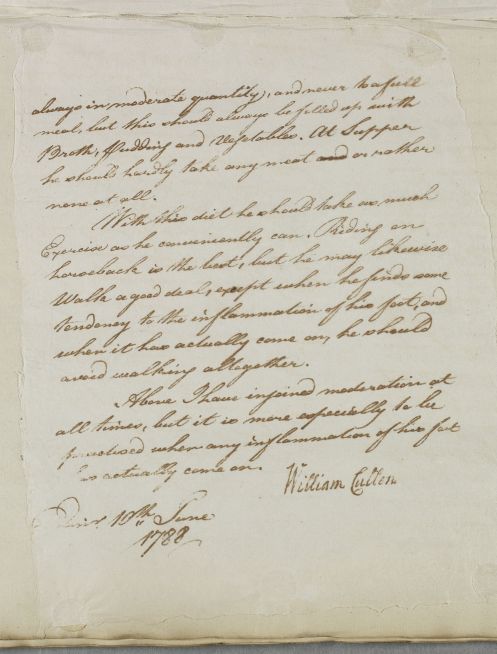 always in moderate quantity, and never to a full
meal, but this should always be filled up with
Broth, Pudding and Vegetables. At Supper
he should hardly take any meat and or rather
none at all.
With this diet he should take as much
Exercise as he conveniently can. Riding on
horseback is the best, but he may likewise
Walk a good deal, except when he finds some
tendency to the inflammation of his foot, and
when it has actually come on, he should
avoid walking altogether.
Above I have injoined moderation at
all times, but it is more especially to be
practised when any inflammation of his foot
has actually come on.
William Cullen
Edinr. 10th June
1788